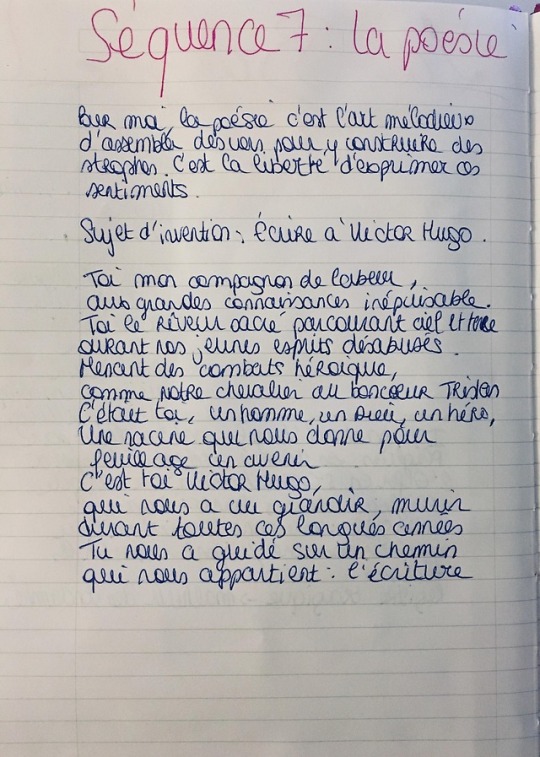 Séquence 7 : la poésie
Pour moi, la poésie c'est l'art mélodieux
d'assembler des vers pour y construire des
strophes. C'est la liberté d'exprimer ces
sentiments.
Sujet d'invention : Écrire à Victor Hugo.
Toi mon compagnon de labeur,
aux grandes connaissances inépuisable.
Toi le rêveur sacré parcourant ciel et terre
durant nos jeunes esprits désabusés.
Menant des combats héroïque,
comme notre chevalier au bon coeur Tristan
C'était toi, un homme, un Dieu, un héro,
Une racine qui nous donne pour
feuillage un avenir
C'est toi Victor Hugo,
qui nous a vu grandir, murir
durant toutes ces longues années
Tu nous a guidé sur un chemin
qui nous appartient : l'écriture